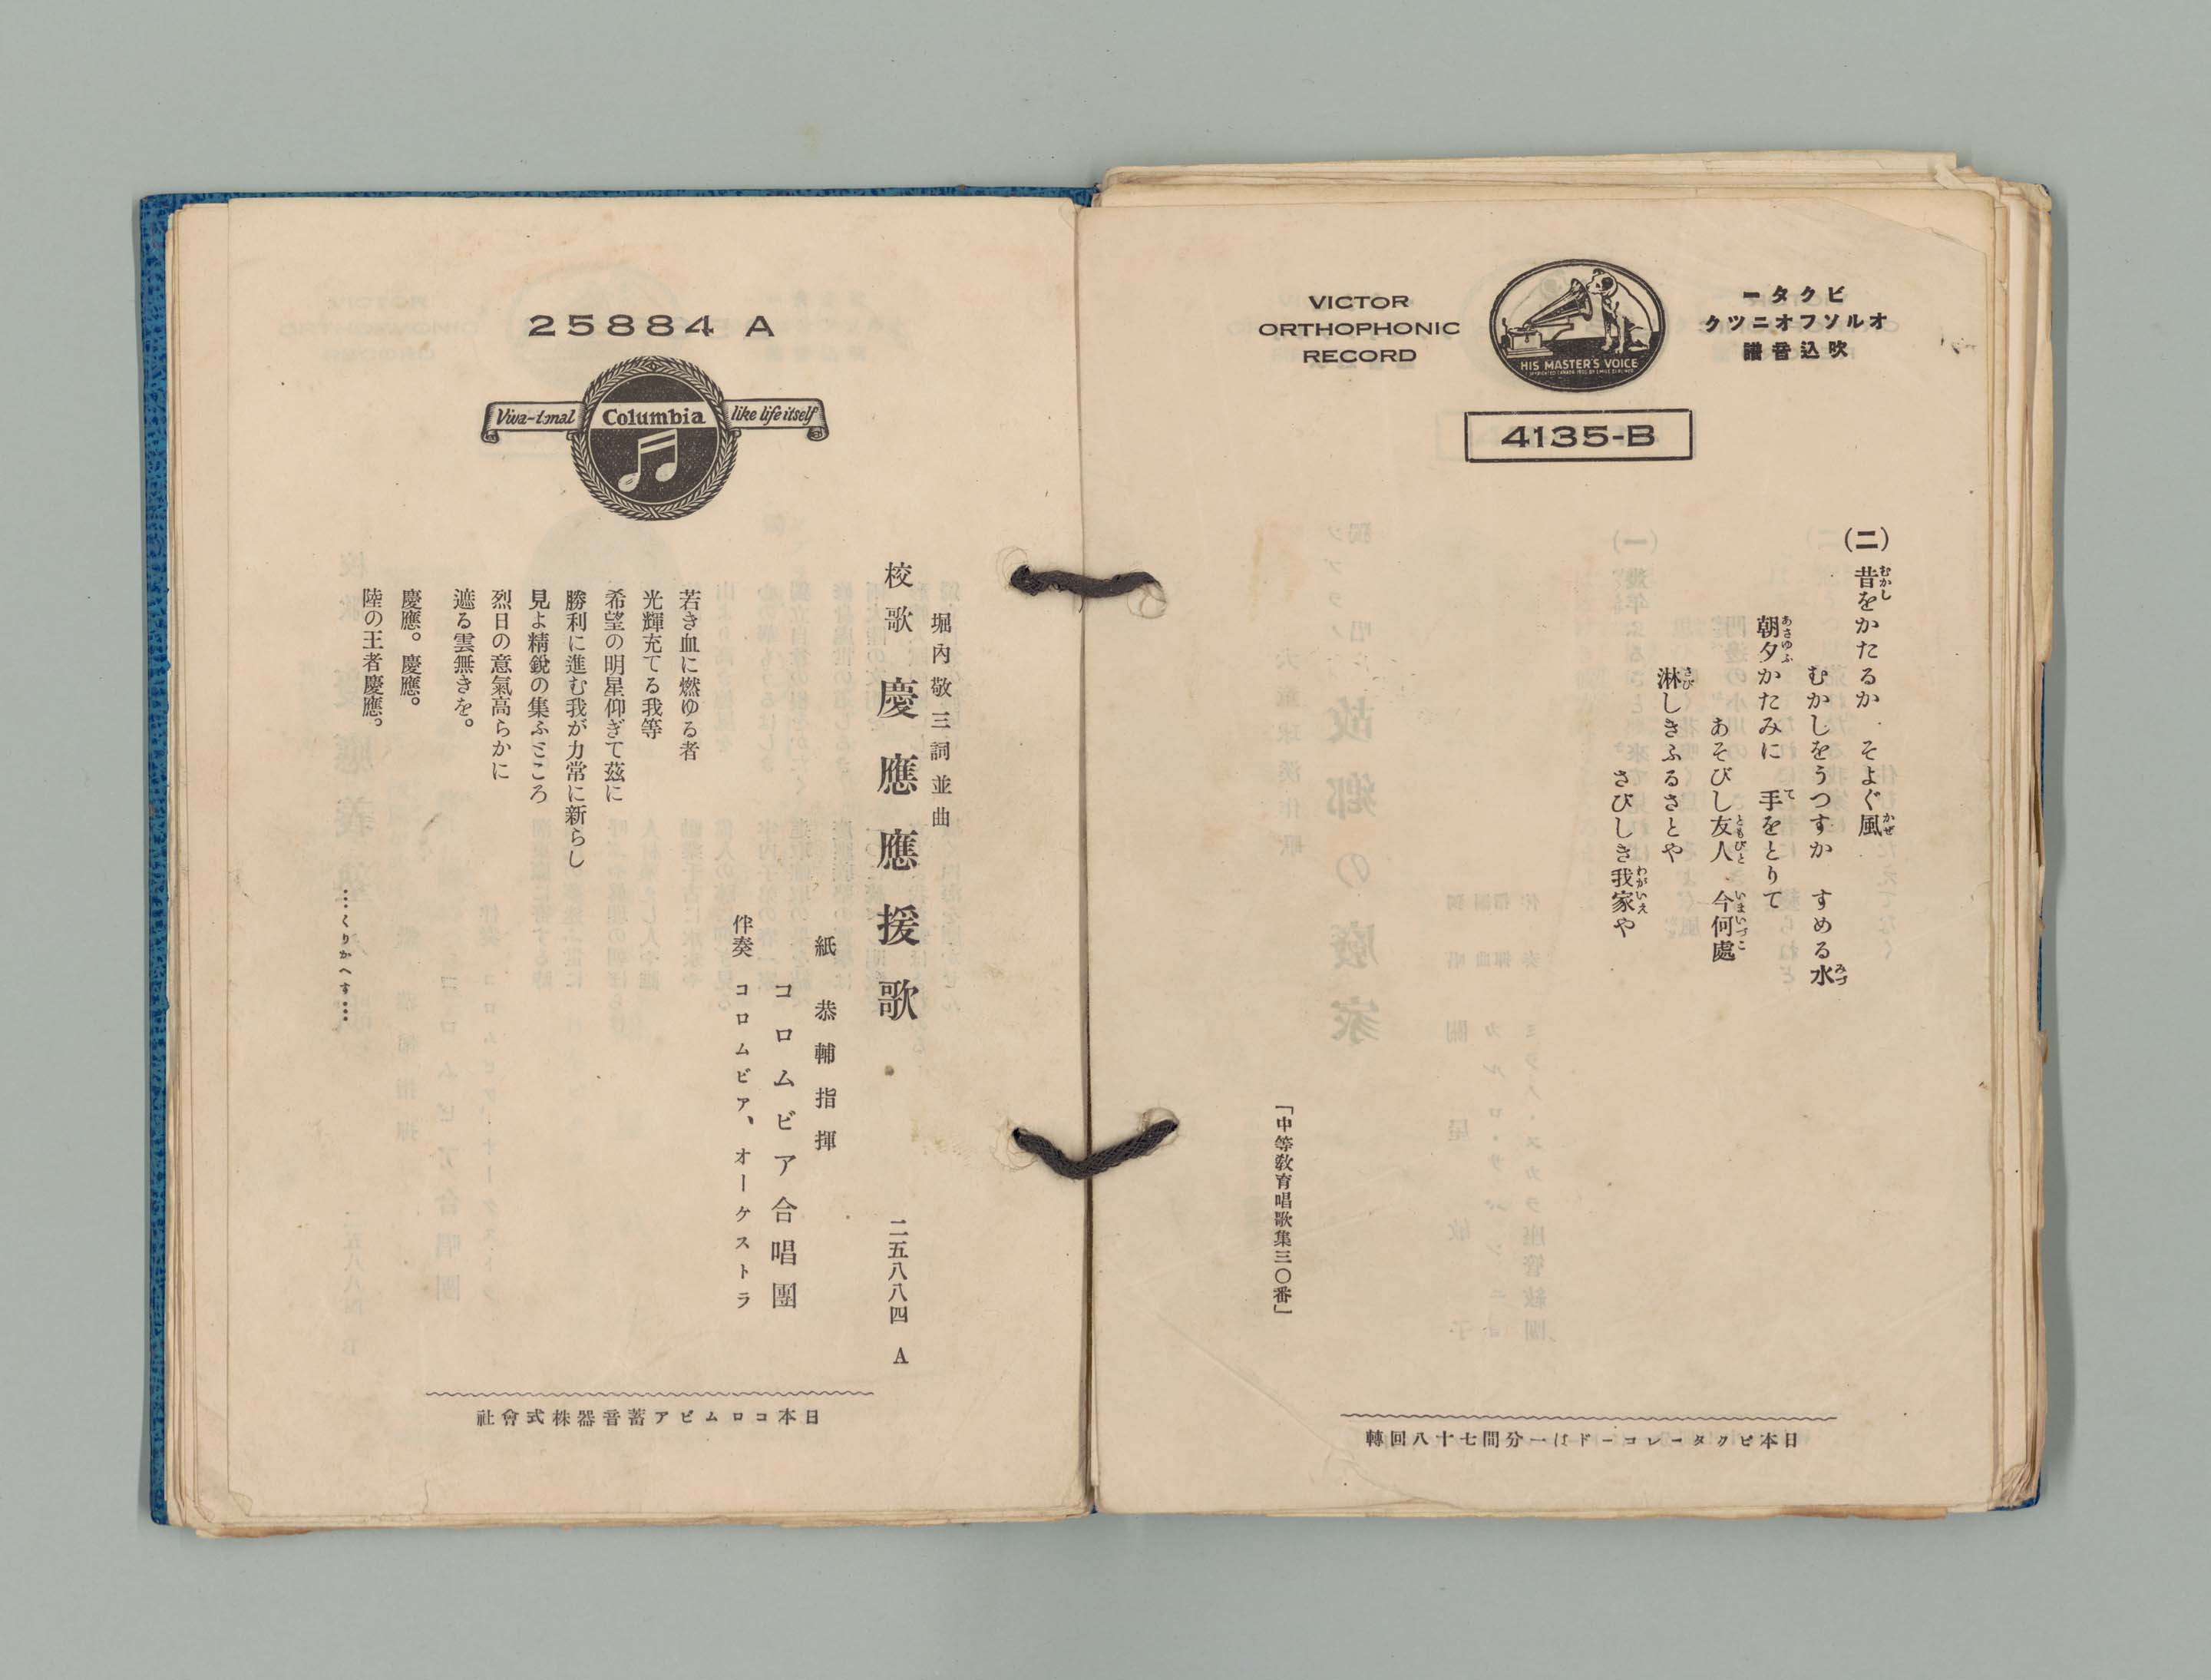 VICTOR
ORTHOPHONIC
RECORD
HIS MASTER'S VOICE
ビクター
オルソフオニツク
吹込音譜
4135-B
(二)昔をかたるか そよぐ風
むかし
かぜ
むかしをうつすか すめる水
みづ
朝夕かたみに 手をとりて
あさゆふ
て
あそびし友人 今何處
ともびと
いまいづこ
淋しきふるさとや
さび
さびしき我家や
わがいえ
「中等敎育唱歌集三〇番」
日本ビクターレコードは一分間七十八回轉
25884 A
Viva-tonal
Columbia
like life itself
堀內敬三詞並曲
校歌 慶應應援歌 二五八八四 A
紙恭輔指揮
コロムビア合唱團
伴奏 コロムビア、オーケストラ
若き血に燃ゆる者
光輝充てる我等
希望の明星仰ぎて玆に
勝利に進む我が力常に新らし
見よ精銳の集ふところ
烈日の意氣高らかに
遮る雲無きを。
慶應。慶應。
陸の王者慶應。
…くりかへす…
日本コロムビア蓄音器株式會社